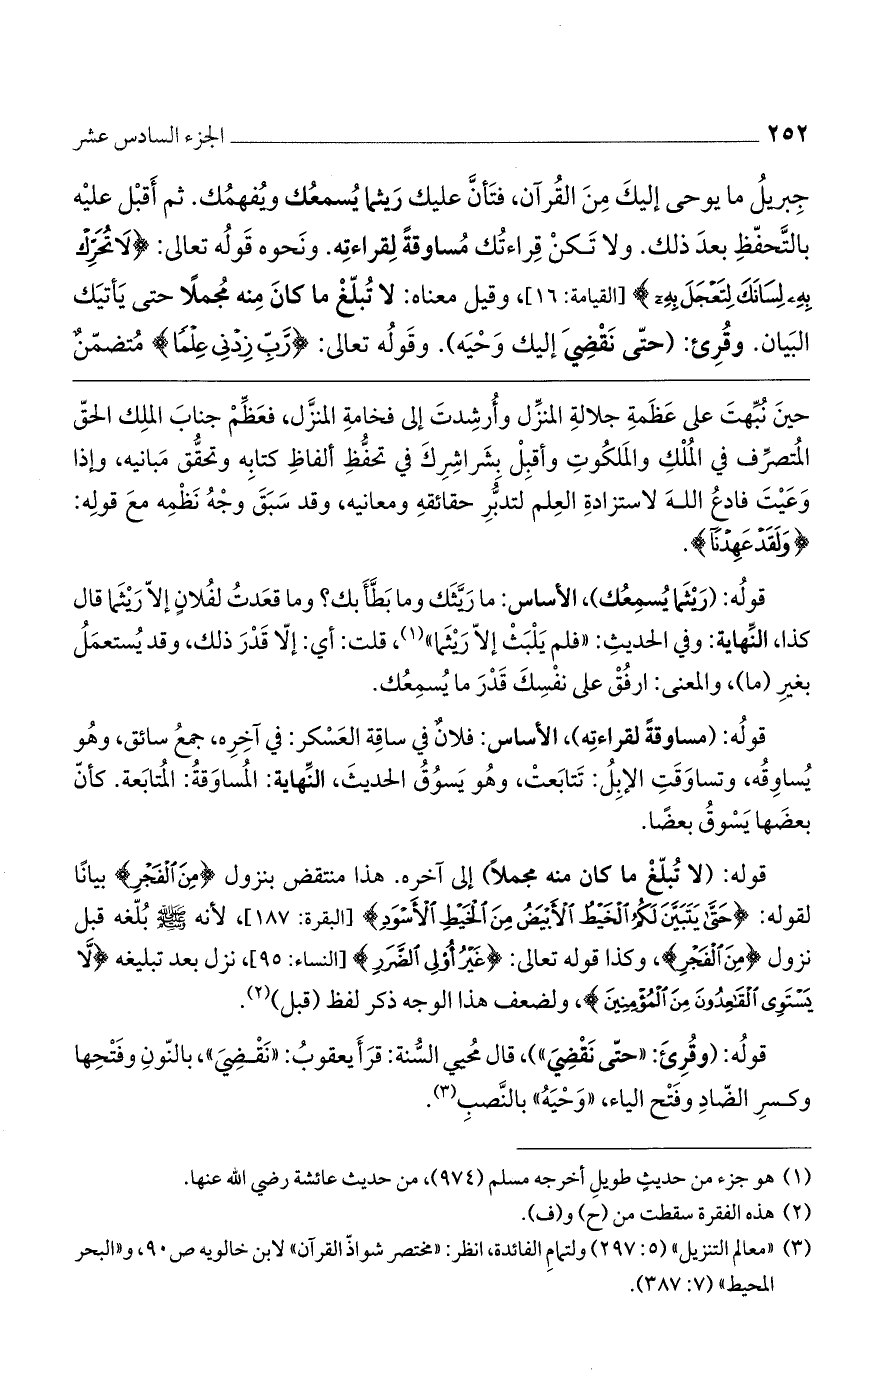 ٢٥٢ الجزء السادس عشر
جِبريلُ ما يوحى إليكَ مِنَ القُرآن، فتَأنَّ عليك رَيثما يُسمعُك ويُفهمُك. ثم أَقبْل عليْه
بالتَّحفّظِ بعدَ ذلك. ولا تَكنْ قِراءتُك مُساوقةً لِقراءتِه. ونَحوه قَولُه تعالى: ﴿لَا تُحَرِّكْ
بِهِۦ لِسَانَكَ لِتَعْجَلَ بِهِۦٓ﴾ [القيامة: ١٦]، وقيل معناه: لا تُبلّغْ ما كانَ مِنه مُجملًا حتى يَأتيَك
البَيان. وقُرِئ: (حتّى نَقْضِيَ إليك وَحْيَه). وقَولُه تعالى: ﴿رَّبِّ زِدْنِى عِلْمًا﴾ مُتضمّنٌ
حينَ نُبِّهتَ على عَظَمةِ جلالةِ المنزِّل وأُرشِدتَ إلى فخامةِ المنزَّل، فعَظِّمْ جنابَ الملِك الحقّ
المُتصرِّف في المُلْكِ والمَلكُوتِ وأقبِلْ بِشَراشِرِكَ في تحفُّظِ ألفاظِ كتابِه وتحقُّق مَبانيه، وإذا
وَعَيْتَ فادعُ اللـهَ لاستزادةِ العِلم لتدبُّرِ حقائقهِ ومعانيه، وقد سَبَقَ وجْهُ نَظْمِه معَ قولِه:
﴿وَلَقَدْ عَهِدْنَآ﴾.
قولُه: (رَيْثَما يُسمِعُك)، الأساس: ما رَيَّثَك وما بَطَّأَ بك؟ وما قعَدتُ لفُلانٍ إلاّ رَيْثَما قال
كذا، النِّهاية: وفي الحديثِ: «فلم يَلْبَثْ إلاّ رَيْثَما»(١)، قلت: أي: إلّا قَدْرَ ذلك، وقد يُستعمَلُ
بغيرِ (ما)، والمعنى: ارفُقْ على نفْسِكَ قَدْرَ ما يُسمِعُك.
قولُه: (مساوقةً لقراءتِه)، الأساس: فلانٌ في ساقِة العَسْكر: في آخِرِه، جمعُ سائق، وهُو
يُساوِقُه، وتساوَقَتِ الإبِلُ: تَتابَعتْ، وهُو يَسوُقُ الحديثَ، النِّهاية: المُساوَقةُ: المُتابَعة. كأنّ
بعضَها يَسْوقُ بعضًا.
قوله: (لا تُبلّغْ ما كان منه مجملاً) إلى آخره. هذا منتقض بنزول ﴿مِنَ ٱلْفَجْرِ﴾ بيانًا
لقوله: ﴿حَتَّىٰ يَتَبَيَّنَ لَكُمُ ٱلْخَيْطُ ٱلْأَبْيَضُ مِنَ ٱلْخَيْطِ ٱلْأَسْوَدِ﴾ [البقرة: ١٨٧]، لأنه ﷺ بُلّغه قبل
نزول ﴿مِنَ ٱلْفَجْرِ﴾، وكذا قوله تعالى: ﴿غَيْرُ أُوْلِى ٱلضَّرَرِ﴾ [النساء: ٩٥]، نزل بعد تبليغه ﴿لَّا
يَسْتَوِى ٱلْقَٰعِدُونَ مِنَ ٱلْمُؤْمِنِينَ﴾، ولضعف هذا الوجه ذكر لفظ (قبل)(٢).
قولُه: (وقُرِئَ: «حتّى نَقْضِيَ»)، قال مُحيي السُّنة: قرَأَ يعقوبُ: «نَقْـضِيَ»، بالنّونِ وفَتْحِها
وكـسرِ الضّادِ وفَتْح الياء، «وَحْيَهُ» بالنَّصبِ(٣).
(١) هو جزء من حديثٍ طويلٍ أخرجه مسلم (٩٧٤)، من حديث عائشة رضي الله عنها.
(٢) هذه الفقرة سقطت من (ح) و(ف).
(٣) «معالم التنزيل» (٥: ٢٩٧) ولتمامِ الفائدة، انظر: «مختصر شواذّ القرآن» لابن خالويه ص٩٠، و«البحر
المحيط» (٧: ٣٨٧).